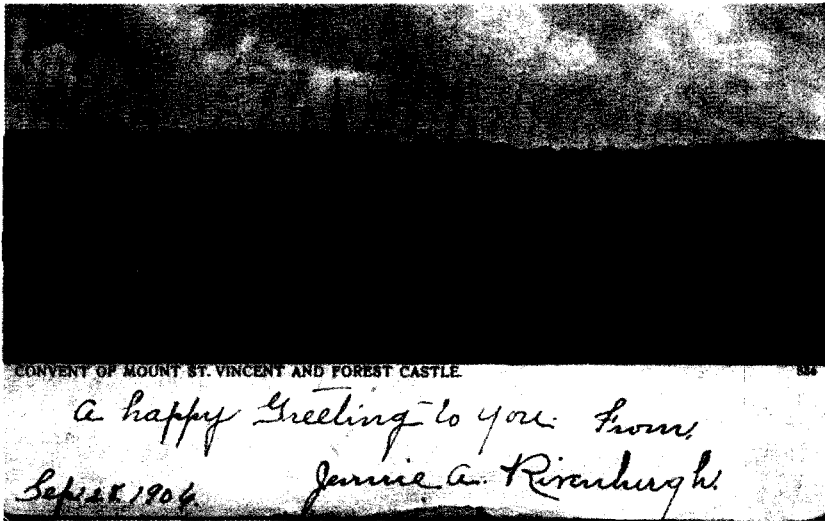 CONVENT OF MOUNT ST. VINCENT AND FOREST CASTLE.
a happy Greeting to you. From.
Jennie A. Rivenburgh.
1906.